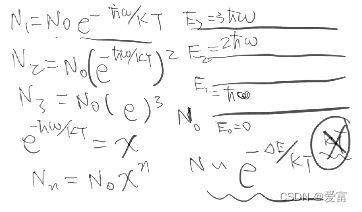 N₁=N₀e^{-ħω/KT}
N₂=N₀(e^{-ħω/KT})²
N₃=N₀(e)³
e^{-ħω/KT}=x
Nₙ=N₀xⁿ
E₃=3ħω
E₂=2ħω
E₁=ħω
N₀ E₀=0
N∼e^{-ΔE/KT}
CSDN @爱富